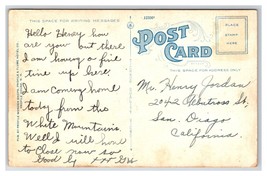 THIS SPACE FOR WRITING MESSAGES
POST CARD
PLACE
STAMP
HERE
THIS SPACE FOR ADDRESS ONLY
Hello Henry how
are you out there
I am having a fine
time up here.
I am coming home
today from the
White Mountains.
Well I will have
to close now so
Good by
Mr. Henry Jordan
2042 Albatross St.
San. Diago
California.